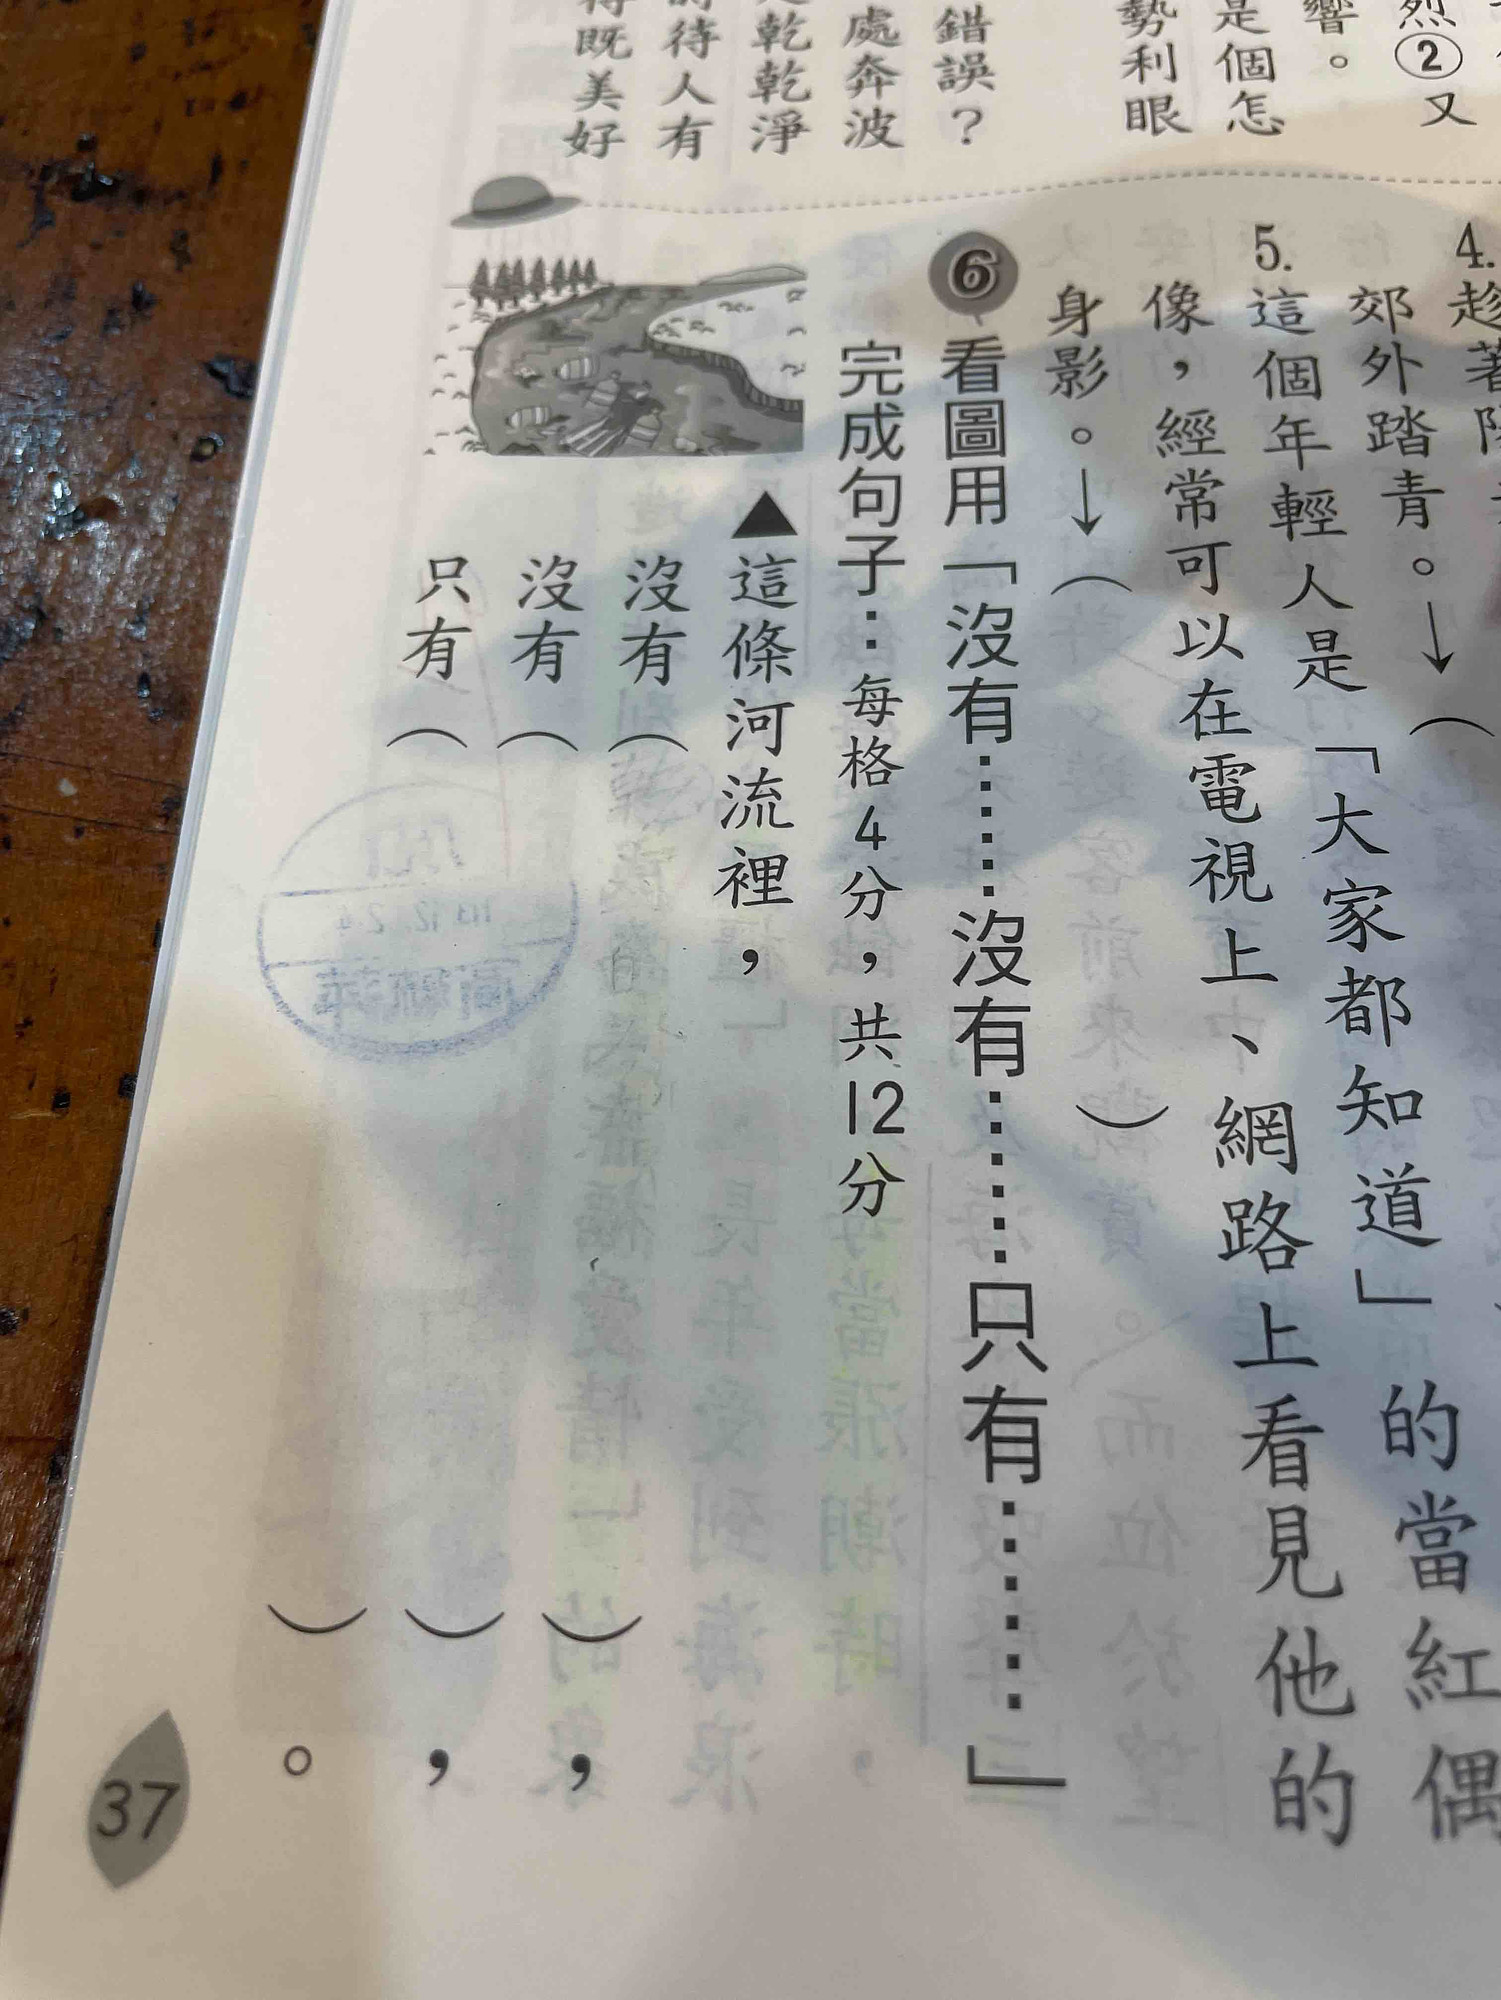 烈②又
響。
是個怎
勢利眼
錯誤?
處奔波
乾乾淨
待人有
既美好
4.趁著
郊外踏青。→(
5.這個年輕人是「大家都知道」的當紅偶
像,經常可以在電視上、網路上看見他的
身影。→(                )
6 看圖用「沒有……沒有……只有……」
完成句子:每格4分,共12分
▲這條河流裡,
沒有(                ),
沒有(                ),
只有(                )。
37